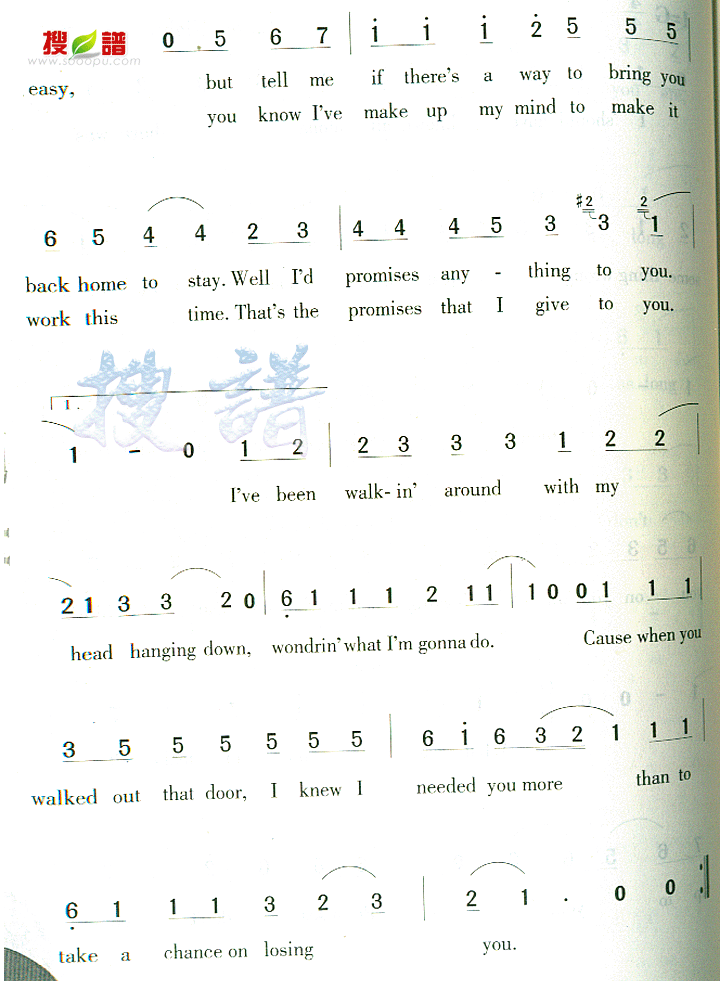 搜谱
www.sooopu.com
0 . 5 6 7 | i i i 2 5 5 5 |
easy, but tell me if there's a way to bring you
you know I've make up my mind to make it
6 5 4 4 2 3 | 4 4 4 5 3 #2 3 2 1 |
back home to stay. Well I'd promises any - thing to you.
work this time. That's the promises that I give to you.
搜谱
1.
1 - 0 1 2 | 2 3 3 3 1 2 2 |
I've been walk-in' around with my
2 1 3 3 2 0 | 6 1 1 1 2 1 1 | 1 0 0 1 1 1 |
head hanging down, wondrin' what I'm gonna do. Cause when you
3 5 5 5 5 5 5 | 6 i 6 3 2 1 1 1 |
walked out that door, I knew I needed you more than to
6 1 1 1 3 2 3 | 2 1 . 0 0 :|
take a chance on losing you.